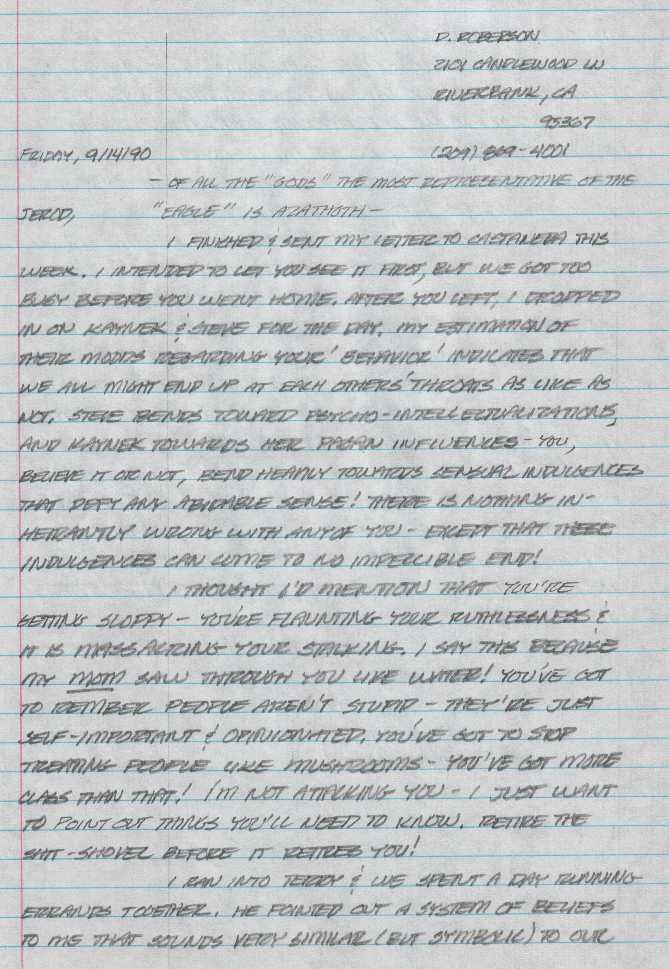 D. ROBERSON
2101 CANDLEWOOD LN
RIVERBANK, CA
95367
FRIDAY, 9/14/90 (209) 869-4001
- OF ALL THE "GODS" THE MOST REPRESENTATIVE OF THE
JEROD, "EAGLE" IS AZATHOTH -
I FINISHED & SENT MY LETTER TO CASTANEDA THIS
WEEK. I INTENDED TO LET YOU SEE IT FIRST, BUT WE GOT TOO
BUSY BEFORE YOU WENT HOME. AFTER YOU LEFT, I DROPPED
IN ON KAYNEK & STEVE FOR THE DAY. MY ESTIMATION OF
THEIR MOODS REGARDING YOUR 'BEHAVIOR' INDICATES THAT
WE ALL MIGHT END UP AT EACH OTHERS' THROATS AS LIKE AS
NOT. STEVE BENDS TOWARD PSYCHO-INTELLECTUALIZATIONS,
AND KAYNEK TOWARDS HER PAGAN INFLUENCES - YOU,
BELIEVE IT OR NOT, BEND HEAVILY TOWARDS SENSUAL INDULGENCES
THAT DEFY ANY ABIDABLE SENSE! THERE IS NOTHING IN-
HEIRANTLY WRONG WITH ANY OF YOU - EXCEPT THAT THESE
INDULGENCES CAN COME TO NO IMPECCIBLE END!
I THOUGHT I'D MENTION THAT YOU'RE
GETTING SLOPPY - YOU'RE FLAUNTING YOUR RUTHLESSNESS &
IT IS MASSACRING YOUR STALKING. I SAY THIS BECAUSE
MY MOM SAW THROUGH YOU LIKE WATER! YOU'VE GOT
TO REMBER PEOPLE AREN'T STUPID - THEY'RE JUST
SELF-IMPORTANT & OPINIONATED. YOU'VE GOT TO STOP
TREATING PEOPLE LIKE MUSHROOMS - YOU'VE GOT MORE
CLASS THAN THAT! I'M NOT ATTACKING YOU - I JUST WANT
TO POINT OUT THINGS YOU'LL NEED TO KNOW. RETIRE THE
SHIT-SHOVEL BEFORE IT RETIRES YOU!
I RAN INTO TERRY & WE SPENT A DAY RUNNING
ERRANDS TOGETHER. HE POINTED OUT A SYSTEM OF BELIEFS
TO ME THAT SOUNDS VERY SIMILAR (BUT SYMBOLIC) TO OUR